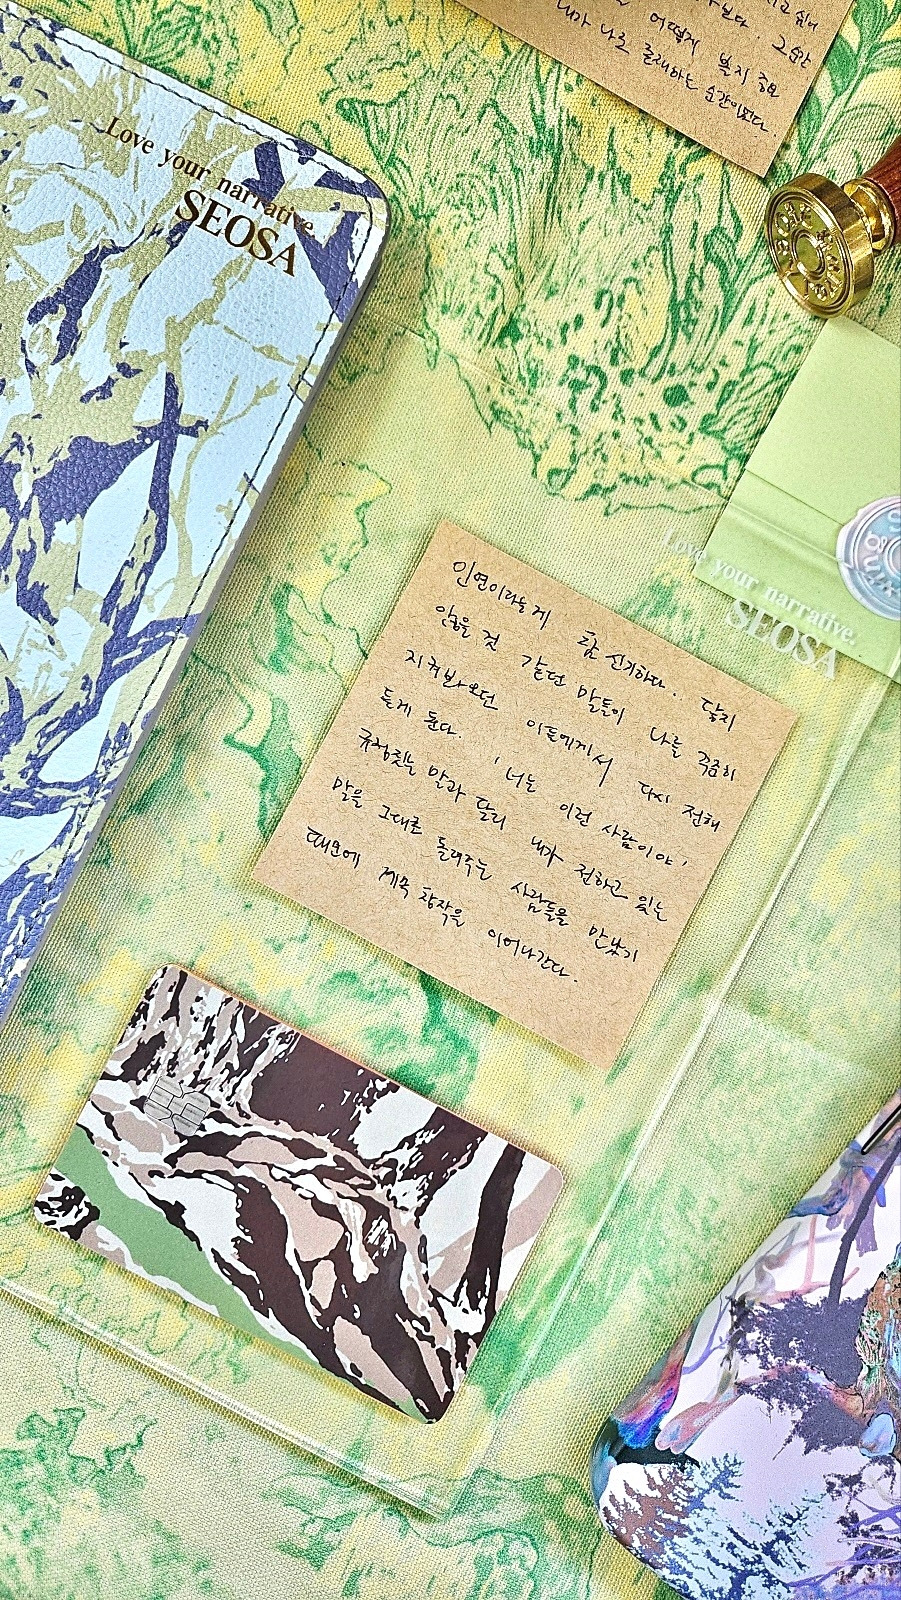 어떻게
내가 나로 존재하는 순간이었다.
Love your narrative.
SEOSA
인연이라는게 참 신기하다. 닿지
않을 것 같던 말들이 나를 묵묵히
지켜봐오던 이들에게서 다시 전해
듣게 된다. '너는 이런 사람이야'
규정짓는 말과 달리 내가 전하고 있는
말을 그대로 돌려주는 사람들을 만났기
때문에 계속 창작을 이어나간다.
Love your narrative.
SEOSA